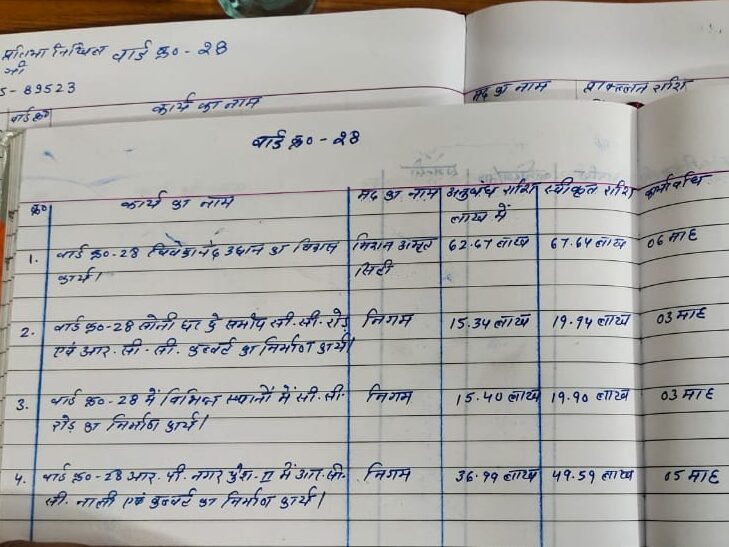 वार्ड क्र० - 28
5 - 89523
वार्ड क्र० कार्य का नाम मद का नाम प्राक्कलन राशि
वार्ड क्र० - 28
क्र० कार्य का नाम मद का नाम अनुबंध राशि स्वीकृत राशि कार्यावधि
लाख में
1. वार्ड क्र०-28 विवेकानंद उद्यान का विकास मिशन अमृत 62.67 लाख 67.64 लाख 06 माह
कार्य। सिटी
2. वार्ड क्र०-28 सोनी घर के समीप सी.सी. रोड निगम 15.34 लाख 19.94 लाख 03 माह
एवं आर.सी.सी. कल्वर्ट का निर्माण कार्य।
3. वार्ड क्र०-28 में विभिन्न स्थानों में सी.सी. निगम 15.40 लाख 19.90 लाख 03 माह
रोड का निर्माण कार्य।
4. वार्ड क्र०-28 आर.पी. नगर फेस-II में आर.सी. निगम 36.99 लाख 49.59 लाख 05 माह
सी. नाली एवं कल्वर्ट का निर्माण कार्य।